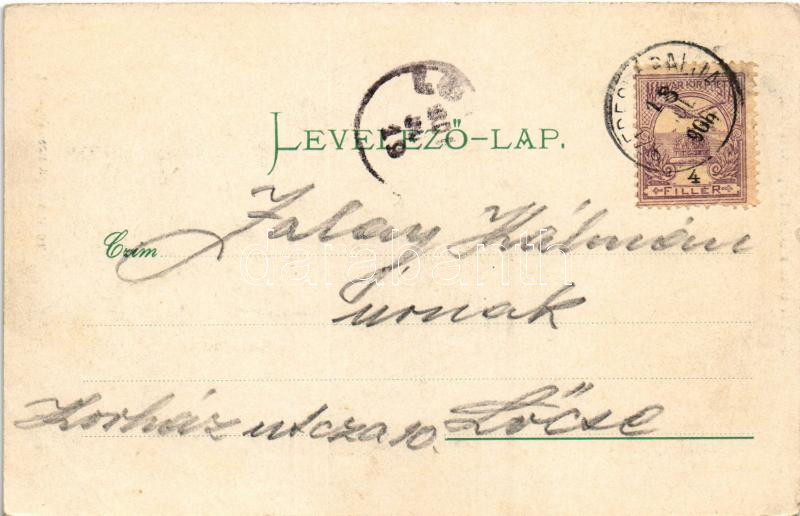 LEVELEZŐ-LAP.
MAGYAR KIR. POSTA
13
906
4
FILLÉR
Czím Zalay Kálmán
úrnak
Korház utcza 10. Lőcse
darabanth